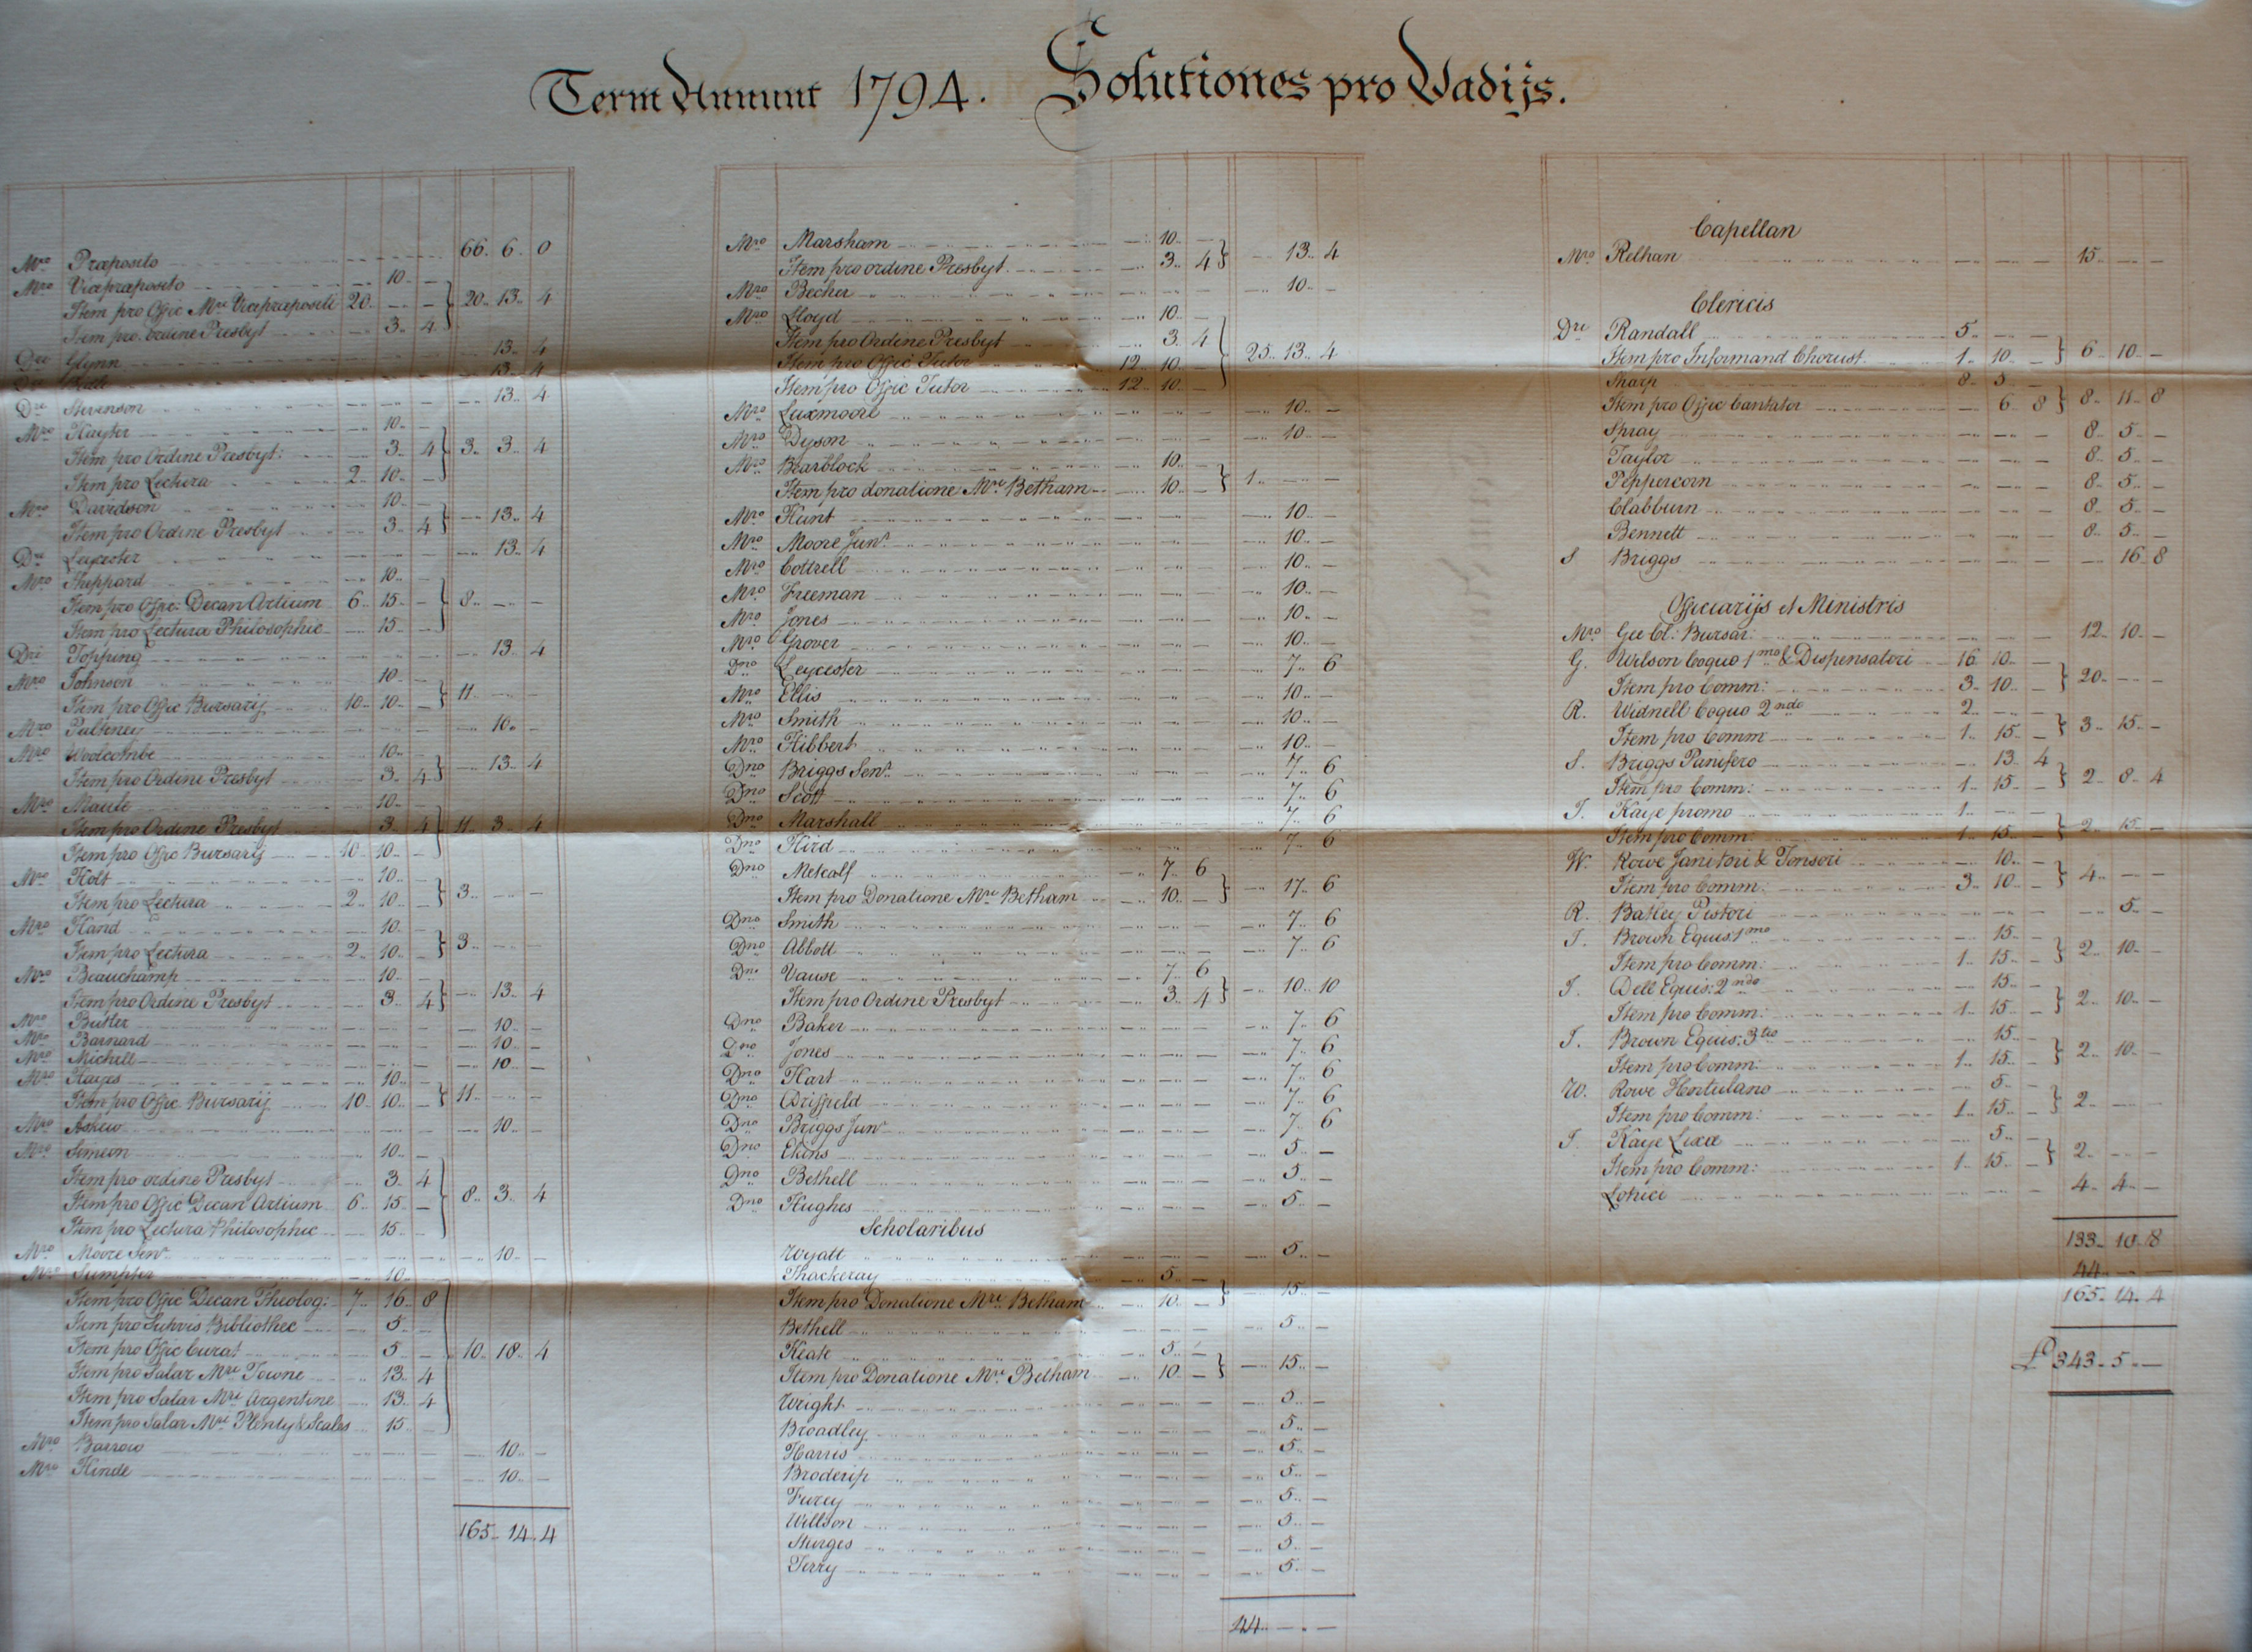 Term Annunt 1794. Solutiones pro Vadijs.
Mro Præposito 66. 6. 0
Mro Vicepræposito 10.. —
Item pro Offic Mri Vicepræpositi 20.. — — } 20.. 13.. 4
Item pro ordine Presbyt 3.. 4
Dre Glynn 13.. 4
13.. 4
Dre Stevenson 13.. 4
Mro Hayter 10.. —
Item pro Ordine Presbyt: 3.. 4 } 3.. 3.. 4
Item pro Lectura 2.. 10.. —
Mro Davidson 10.. —
Item pro Ordine Presbyt 3.. 4 } 13.. 4
Dre Leycester 13.. 4
Mro Sheppard 10.. —
Item pro Offic: Decan Artium 6.. 15.. — } 8.. — —
Item pro Lectura Philosophic 15.. —
Dri Topping 13.. 4
Mro Johnson 10.. —
Item pro Offic Bursarij 10.. 10.. — } 11.. — —
Mro Pulteney 10.. —
Mro Woolcombe 10.. —
Item pro Ordine Presbyt 3.. 4 } 13.. 4
Mro Maule 10.. —
Item pro Ordine Presbyt 3.. 4 } 11.. 3.. 4
Item pro Offic Bursarij 10.. 10.. —
Mro Holt 10.. —
Item pro Lectura 2.. 10.. — } 3.. — —
Mro Hand 10.. —
Item pro Lectura 2.. 10.. — } 3.. — —
Mro Beauchamp 10.. —
Item pro Ordine Presbyt 3.. 4 } 13.. 4
Mro Butler 10.. —
Mro Barnard 10.. —
Mro Michell 10.. —
Mro Hayes 10.. —
Item pro Offic Bursarij 10.. 10.. — } 11.. — —
Mro Askew 10.. —
Mro Simeon 10.. —
Item pro ordine Presbyt 3.. 4
Item pro Offic Decan Artium 6.. 15.. — } 8.. 3.. 4
Item pro Lectura Philosophic 15.. —
Mro Moore Senr 10.. —
Mro Sumpter 10.. —
Item pro Offic Decan Theolog: 7.. 16.. 8
Item pro Suprvis Bibliothec 5.. —
Item pro Offic Curat 5.. — } 10.. 18.. 4
Item pro Salar Mri Towne 13.. 4
Item pro Salar Mri Argentine 13.. 4
Item pro Salar Mri Plenty & Scales 15.. —
Mro Barrow 10.. —
Mro Hinde 10.. —
165.. 14.. 4
Mro Marsham 10.. —
Item pro ordine Presbyt 3.. 4 } 13.. 4
Mro Becher 10.. —
Mro Lloyd 10.. —
Item pro Ordine Presbyt 3.. 4 } 25.. 13.. 4
Item pro Offic Tutor 12.. 10.. —
Item pro Offic Tutor 12.. 10.. —
Mro Luxmoore 10.. —
Mro Dyson 10.. —
Mro Bearblock 10.. —
Item pro donatione Mri Betham 10.. — } 1.. — —
Mro Hunt 10.. —
Mro Moore Junr 10.. —
Mro Cottrell 10.. —
Mro Freeman 10.. —
Mro Jones 10.. —
Mro Grover 10.. —
Dno Leycester 7.. 6
Mro Ellis 10.. —
Mro Smith 10.. —
Mro Hibbert 10.. —
Dno Briggs Senr 7.. 6
Dno Scott 7.. 6
Dno Marshall 7.. 6
Dno Hird 7.. 6
Dno Metcalf 7.. 6
Item pro Donatione Mri Betham 10.. — } 17.. 6
Dno Smith 7.. 6
Dno Abbott 7.. 6
Dno Vause 7.. 6
Item pro Ordine Presbyt 3.. 4 } 10.. 10
Dno Baker 7.. 6
Dno Jones 7.. 6
Dno Hart 7.. 6
Dno Driffield 7.. 6
Dno Briggs Junr 7.. 6
Dno Ekins 5.. —
Dno Bethell 5.. —
Dno Hughes 5.. —
Scholaribus
Wyatt 5.. —
Thackeray 5.. —
Item pro Donatione Mri Betham 10.. — } 15.. —
Bethell 5.. —
Keate 5.. —
Item pro Donatione Mri Betham 10.. — } 15.. —
Wright 5.. —
Broadley 5.. —
Harris 5.. —
Broderip 5.. —
Furey 5.. —
Willson 5.. —
Sturges 5.. —
Terry 5.. —
44.. — —
Capellan
Mro Relhan 15.. — —
Clericis
Dre Randall 5.. — —
Item pro Informand Chorust. 1.. 10.. — } 6.. 10.. —
Sharp 8.. 5.. —
Item pro Offic Cantator 6.. 8 } 8.. 11.. 8
Spray 8.. 5.. —
Taylor 8.. 5.. —
Peppercorn 8.. 5.. —
Clabburn 8.. 5.. —
Bennett 8.. 5.. —
S Briggs 16.. 8
Officiarijs et Ministris
Mro Gee Cl: Bursar: 12.. 10.. —
G. Wilson Coquo 1mo & Dispensatori 16.. 10.. —
Item pro Comm: 3.. 10.. — } 20.. — —
R. Widnell Coquo 2ndo 2.. — —
Item pro Comm 1.. 15.. — } 3.. 15.. —
S. Briggs Panifero 13.. 4
Item pro Comm: 1.. 15.. — } 2.. 8.. 4
T. Kaye promo 1.. — —
Item pro Comm: 1.. 15.. — } 2.. 15.. —
W. Rowe Janitori & Tonsori 10.. —
Item pro Comm: 3.. 10.. — } 4.. — —
R. Batley Pistori 5.. —
J. Brown Equis: 1mo 15.. —
Item pro Comm: 1.. 15.. — } 2.. 10.. —
J. Dell Equis: 2ndo 15.. —
Item pro Comm: 1.. 15.. — } 2.. 10.. —
J. Brown Equis: 3tio 15.. —
Item pro Comm: 1.. 15.. — } 2.. 10.. —
W. Rowe Hortulano 5.. —
Item pro Comm: 1.. 15.. — } 2.. — —
T. Kaye Lixæ 5.. —
Item pro Comm: 1.. 15.. — } 2.. — —
Lotrici 4.. 4.. —
133.. 10.. 8
44.. — —
165.. 14.. 4
£ 343.. 5.. —